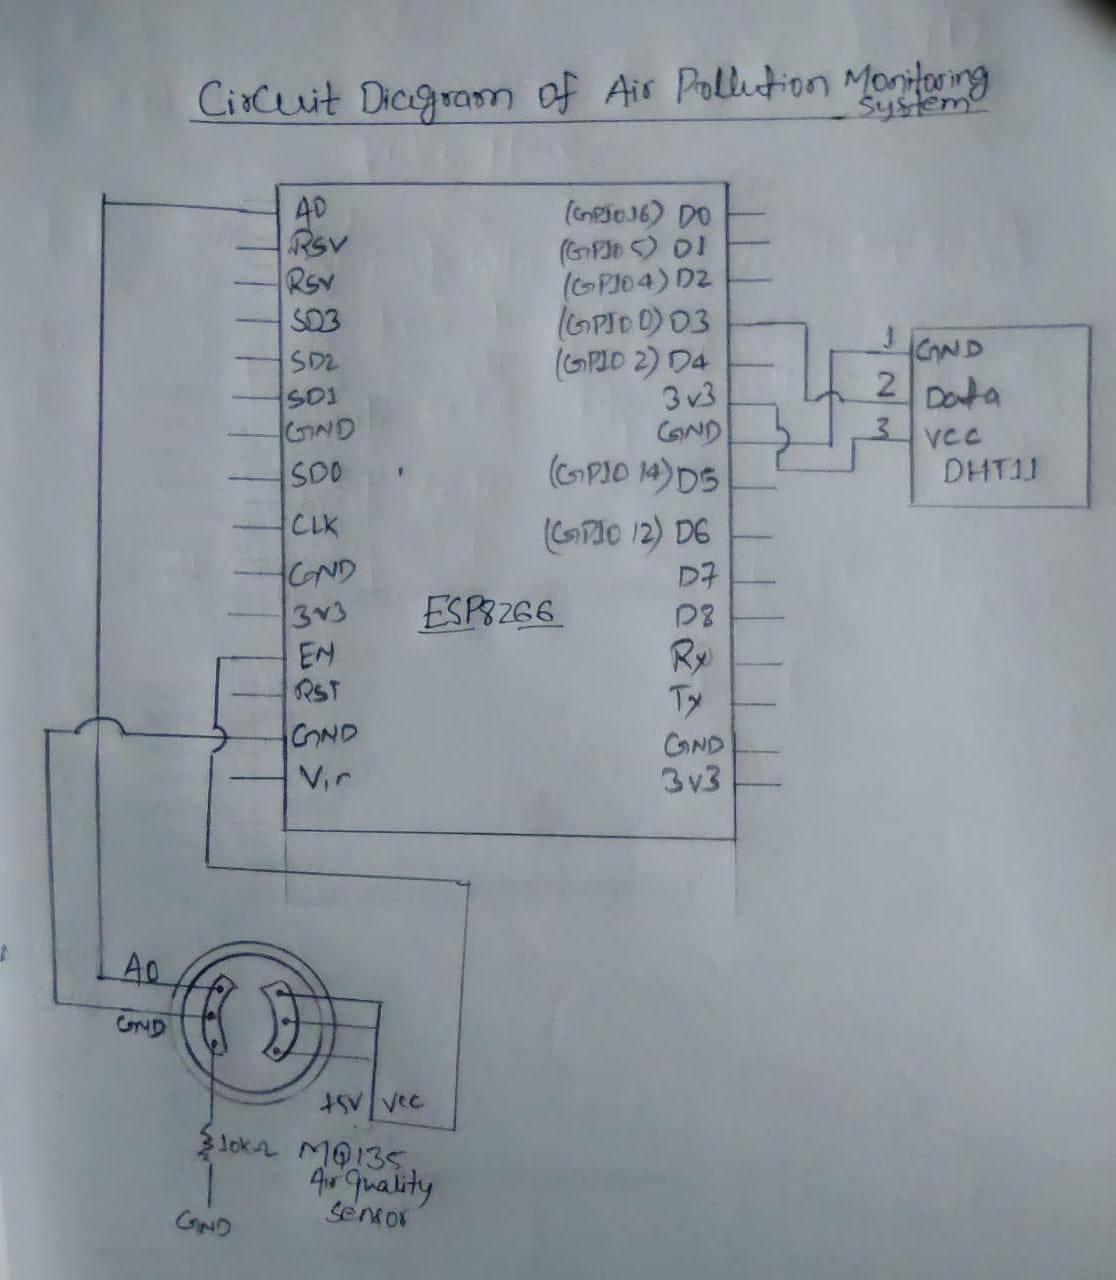 Circuit Diagram of Air Pollution Monitoring
System
A0
RSV
RSV
SD3
SD2
SD1
GND
SD0
CLK
GND
3v3
EN
RST
GND
Vin
ESP8266
(GPIO16) D0
(GPIO 5) D1
(GPIO4) D2
(GPIO 0) D3
(GPIO 2) D4
3v3
GND
(GPIO 14) D5
(GPIO 12) D6
D7
D8
Rx
Tx
GND
3v3
1 GND
2 Data
3 vcc
DHT11
A0
GND
+5V vcc
10kΩ
GND
MQ135
Air Quality
Sensor